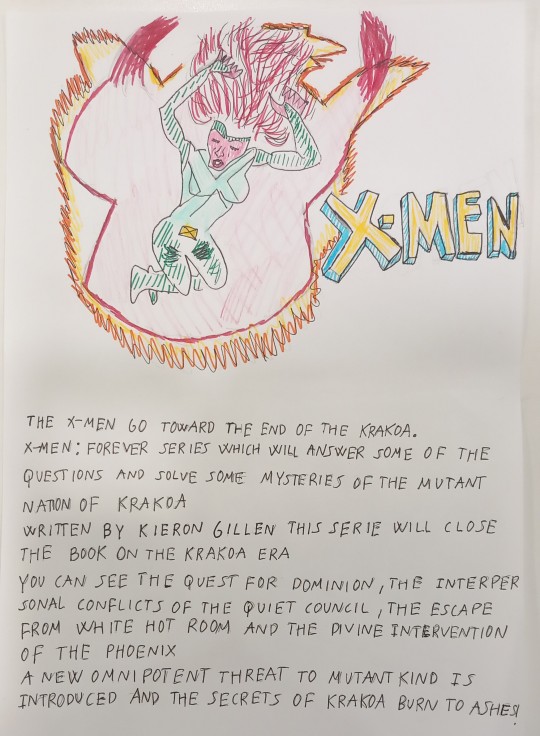 X-MEN
THE X-MEN GO TOWARD THE END OF THE KRAKOA.
X-MEN: FOREVER SERIES WHICH WILL ANSWER SOME OF THE
QUESTIONS AND SOLVE SOME MYSTERIES OF THE MUTANT
NATION OF KRAKOA
WRITTEN BY KIERON GILLEN THIS SERIE WILL CLOSE
THE BOOK ON THE KRAKOA ERA
YOU CAN SEE THE QUEST FOR DOMINION, THE INTERPER
SONAL CONFLICTS OF THE QUIET COUNCIL, THE ESCAPE
FROM WHITE HOT ROOM AND THE DIVINE INTERVENTION
OF THE PHOENIX
A NEW OMNIPOTENT THREAT TO MUTANTKIND IS
INTRODUCED AND THE SECRETS OF KRAKOA BURN TO ASHES!